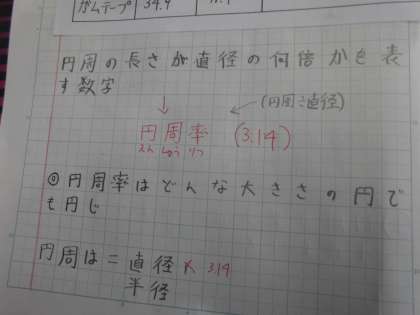 ガムテープ 34.9
円周の長さが直径の何倍かを表
す数字
↓ ← (円周÷直径)
円周率 (3.14)
えん しゅう りつ
◎円周率はどんな大きさの円で
も円じ
円周は=直径×3.14
半径